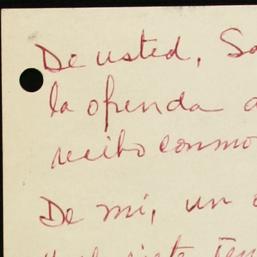 De usted, Sa
la ofrenda a
recibo conmo
De mí, un